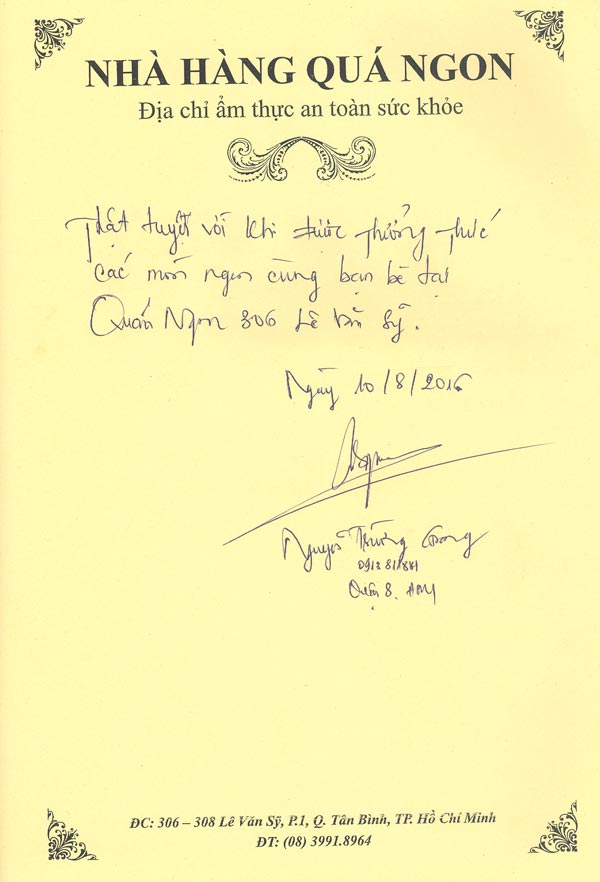 NHÀ HÀNG QUÁ NGON
Địa chỉ ẩm thực an toàn sức khỏe
Thật tuyệt vời khi được thưởng thức
các món ngon cùng bạn bè tại
Quán Ngon 306 Lê Văn Sỹ.
Ngày 10/8/2016
Nguyễn Trường
Quận 8.
ĐC: 306 – 308 Lê Văn Sỹ, P.1, Q. Tân Bình, TP. Hồ Chí Minh
ĐT: (08) 3991.8964